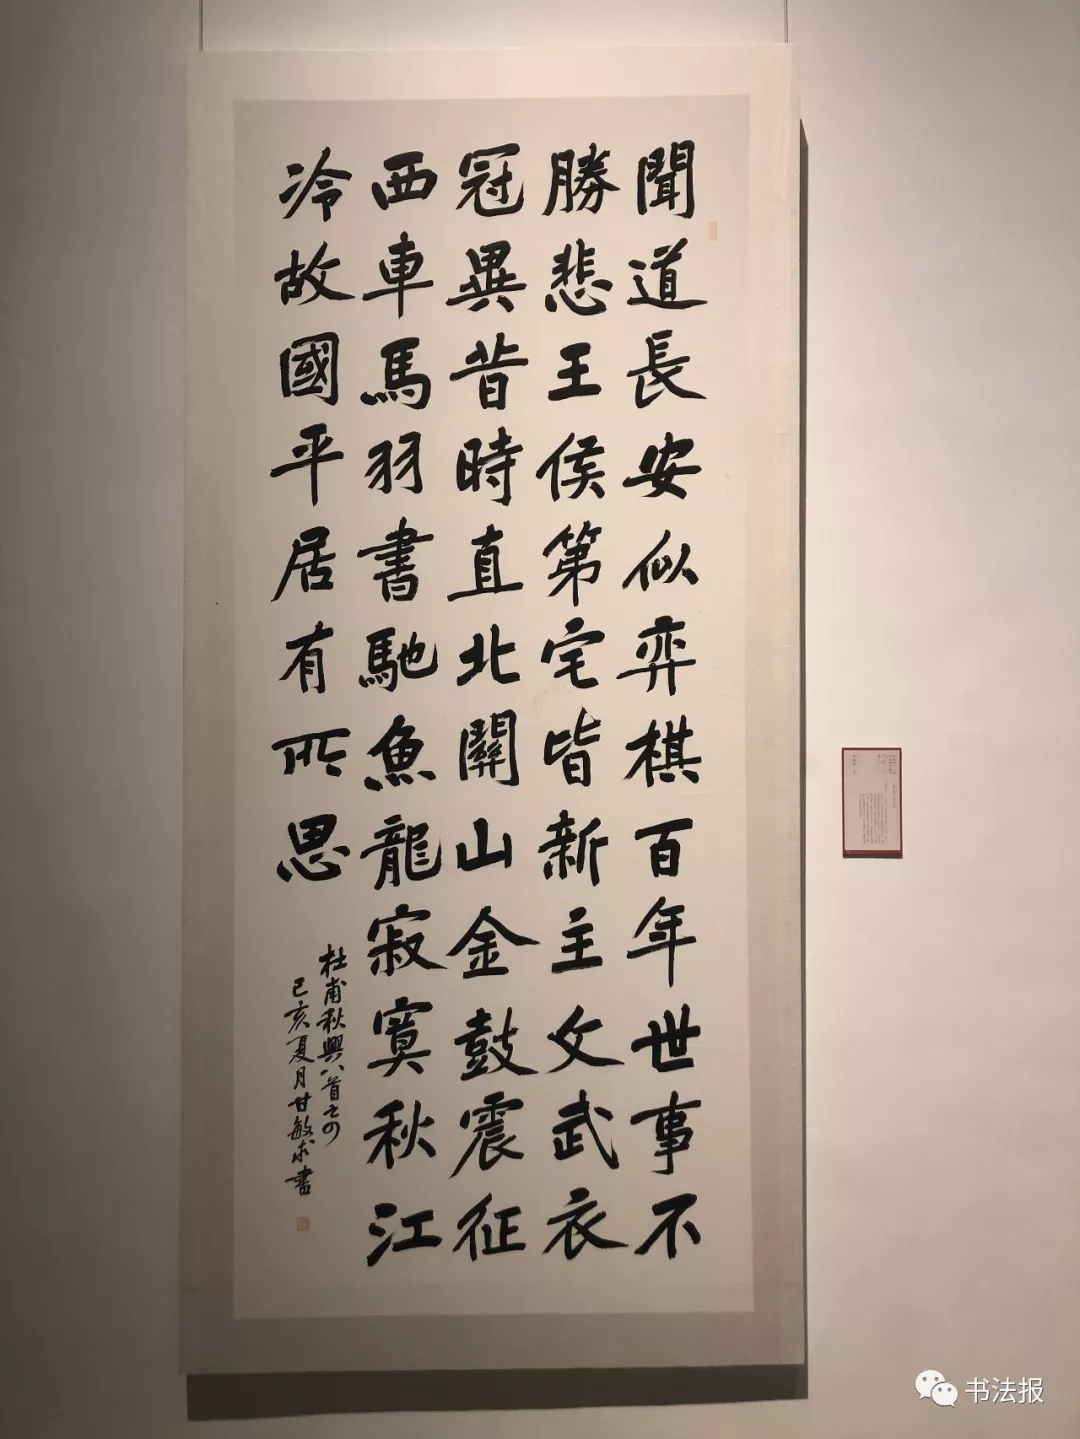 聞道長安似弈棋百年世事不
勝悲王侯第宅皆新主文武衣
冠異昔時直北關山金鼓震征
西車馬羽書馳魚龍寂寞秋江
冷故國平居有所思
杜甫秋興八首之四
己亥夏月甘敏求書
书法报